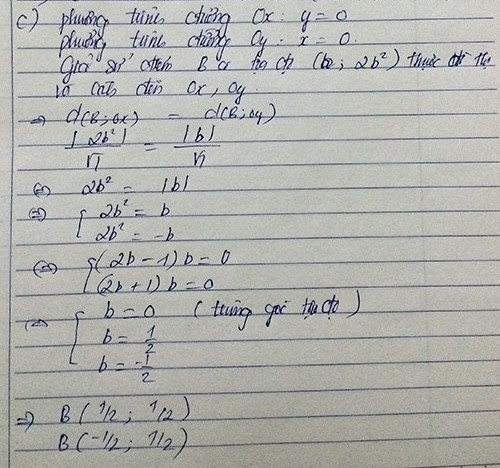 c) phương trình đường Ox: y = 0
phương trình đường Oy: x = 0.
Giả sử điểm B có tọa độ (b; 2b²) thuộc đồ thị
và cách đến Ox, Oy.
⇒ d(B; Ox) = d(B; Oy)
|2b²| / √1 = |b| / √1
⇔ 2b² = |b|
⇒ { 2b² = b
2b² = -b
⇔ { (2b - 1) b = 0
(2b + 1) b = 0
⇔ { b = 0 (trùng gốc tọa độ)
b = 1/2
b = -1/2
⇒ B (1/2; 1/2)
B (-1/2; 1/2)